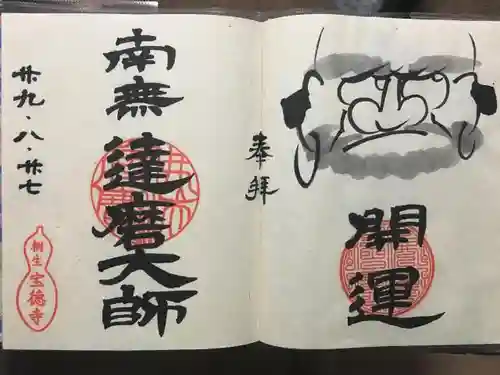 奉拝
開運
南無達磨大師
廿九・八・廿七
桐生
宝徳寺